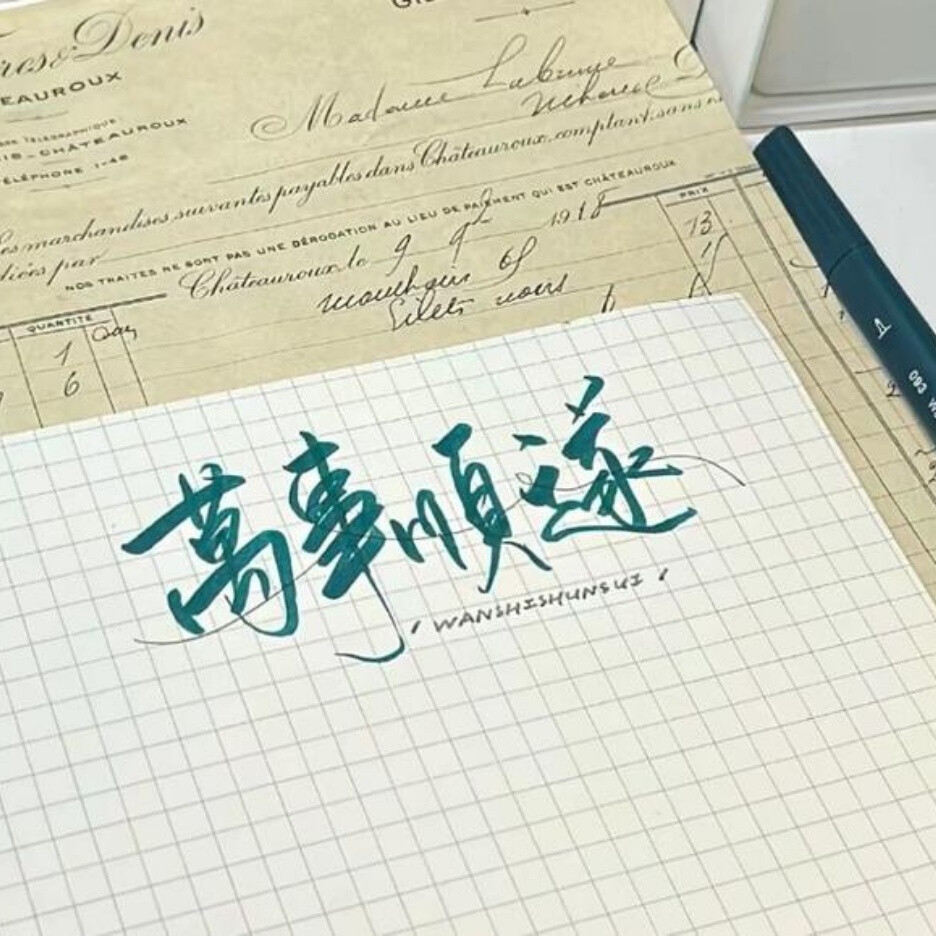 res & Denis
EAUROUX
TÉLÉGRAPHIQUE
IS-CHÂTEAUROUX
TÉLÉPHONE 1-46
Madame
es marchandises suivantes payables dans Châteauroux, comptant, sans
diées par
NOS TRAITES NE SONT PAS UNE DÉROGATION AU LIEU DE PAIEMENT QUI EST CHÂTEAUROUX
Châteauroux, le 9 9 1918
QUANTITÉ
PRIX
13
1
6
萬事順遂
WANSHISHUNSUI
093